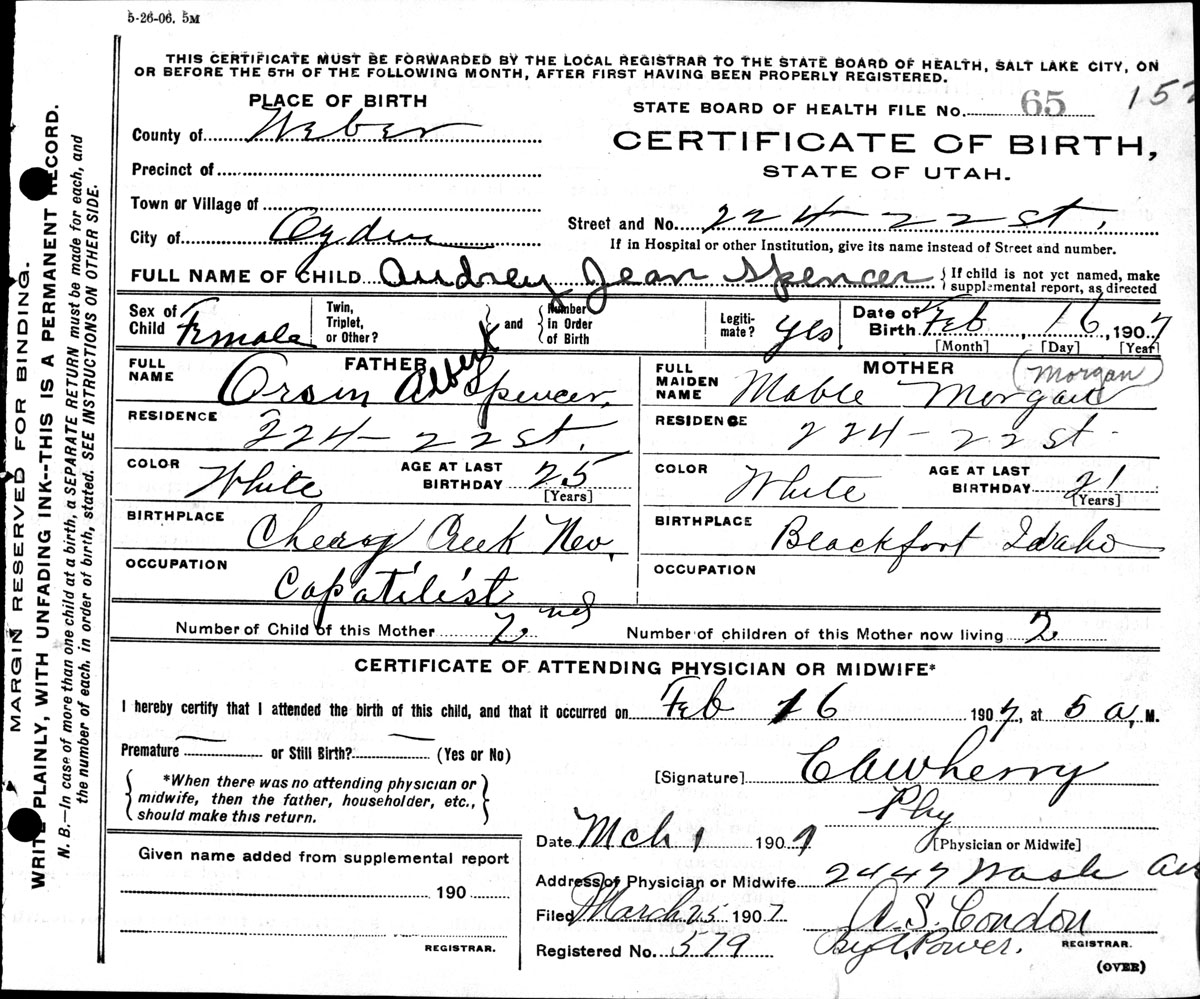 5-26-06. 5M
THIS CERTIFICATE MUST BE FORWARDED BY THE LOCAL REGISTRAR TO THE STATE BOARD OF HEALTH, SALT LAKE CITY, ON
OR BEFORE THE 5TH OF THE FOLLOWING MONTH, AFTER FIRST HAVING BEEN PROPERLY REGISTERED.
PLACE OF BIRTH
STATE BOARD OF HEALTH FILE No. 65 152
County of Weber
CERTIFICATE OF BIRTH,
STATE OF UTAH.
Precinct of
Town or Village of
City of Ogden
Street and No. 224-22 st.
If in Hospital or other Institution, give its name instead of Street and number.
FULL NAME OF CHILD Audrey Jean Spencer { If child is not yet named, make
supplemental report, as directed
Sex of Child Female
Twin, Triplet, or Other? } and { Number in Order of Birth
Legiti-mate? yes
Date of Birth Feb, 16, 1907
[Month] [Day] [Year]
FATHER
FULL NAME Orson Albert Spencer.
RESIDENCE 224-22 st.
COLOR White AGE AT LAST BIRTHDAY 25 [Years]
BIRTHPLACE Cherry Creek Nev.
OCCUPATION Capatilist
MOTHER
FULL MAIDEN NAME Mable Morgan (Morgan)
RESIDENCE 224-22 st.
COLOR White AGE AT LAST BIRTHDAY 21 [Years]
BIRTHPLACE Blackfort Idaho
OCCUPATION
Number of Child of this Mother 2nd Number of children of this Mother now living 2
CERTIFICATE OF ATTENDING PHYSICIAN OR MIDWIFE*
I hereby certify that I attended the birth of this child, and that it occurred on Feb 16 1907, at 5 a, M.
Premature — or Still Birth? — (Yes or No)
{ *When there was no attending physician or
midwife, then the father, householder, etc.,
should make this return. }
[Signature] Wherry
Phy
[Physician or Midwife]
Date Mch 1 1907
Address of Physician or Midwife 2447 Wash Ave
Filed March 25 1907 A. S. Condon
REGISTRAR.
Registered No. 379 Power.
(OVER)
Given name added from supplemental report
190
REGISTRAR.
MARGIN RESERVED FOR BINDING.
WRITE PLAINLY, WITH UNFADING INK--THIS IS A PERMANENT RECORD.
N. B.—In case of more than one child at a birth, a SEPARATE RETURN must be made for each, and
the number of each, in order of birth, stated. SEE INSTRUCTIONS ON OTHER SIDE.